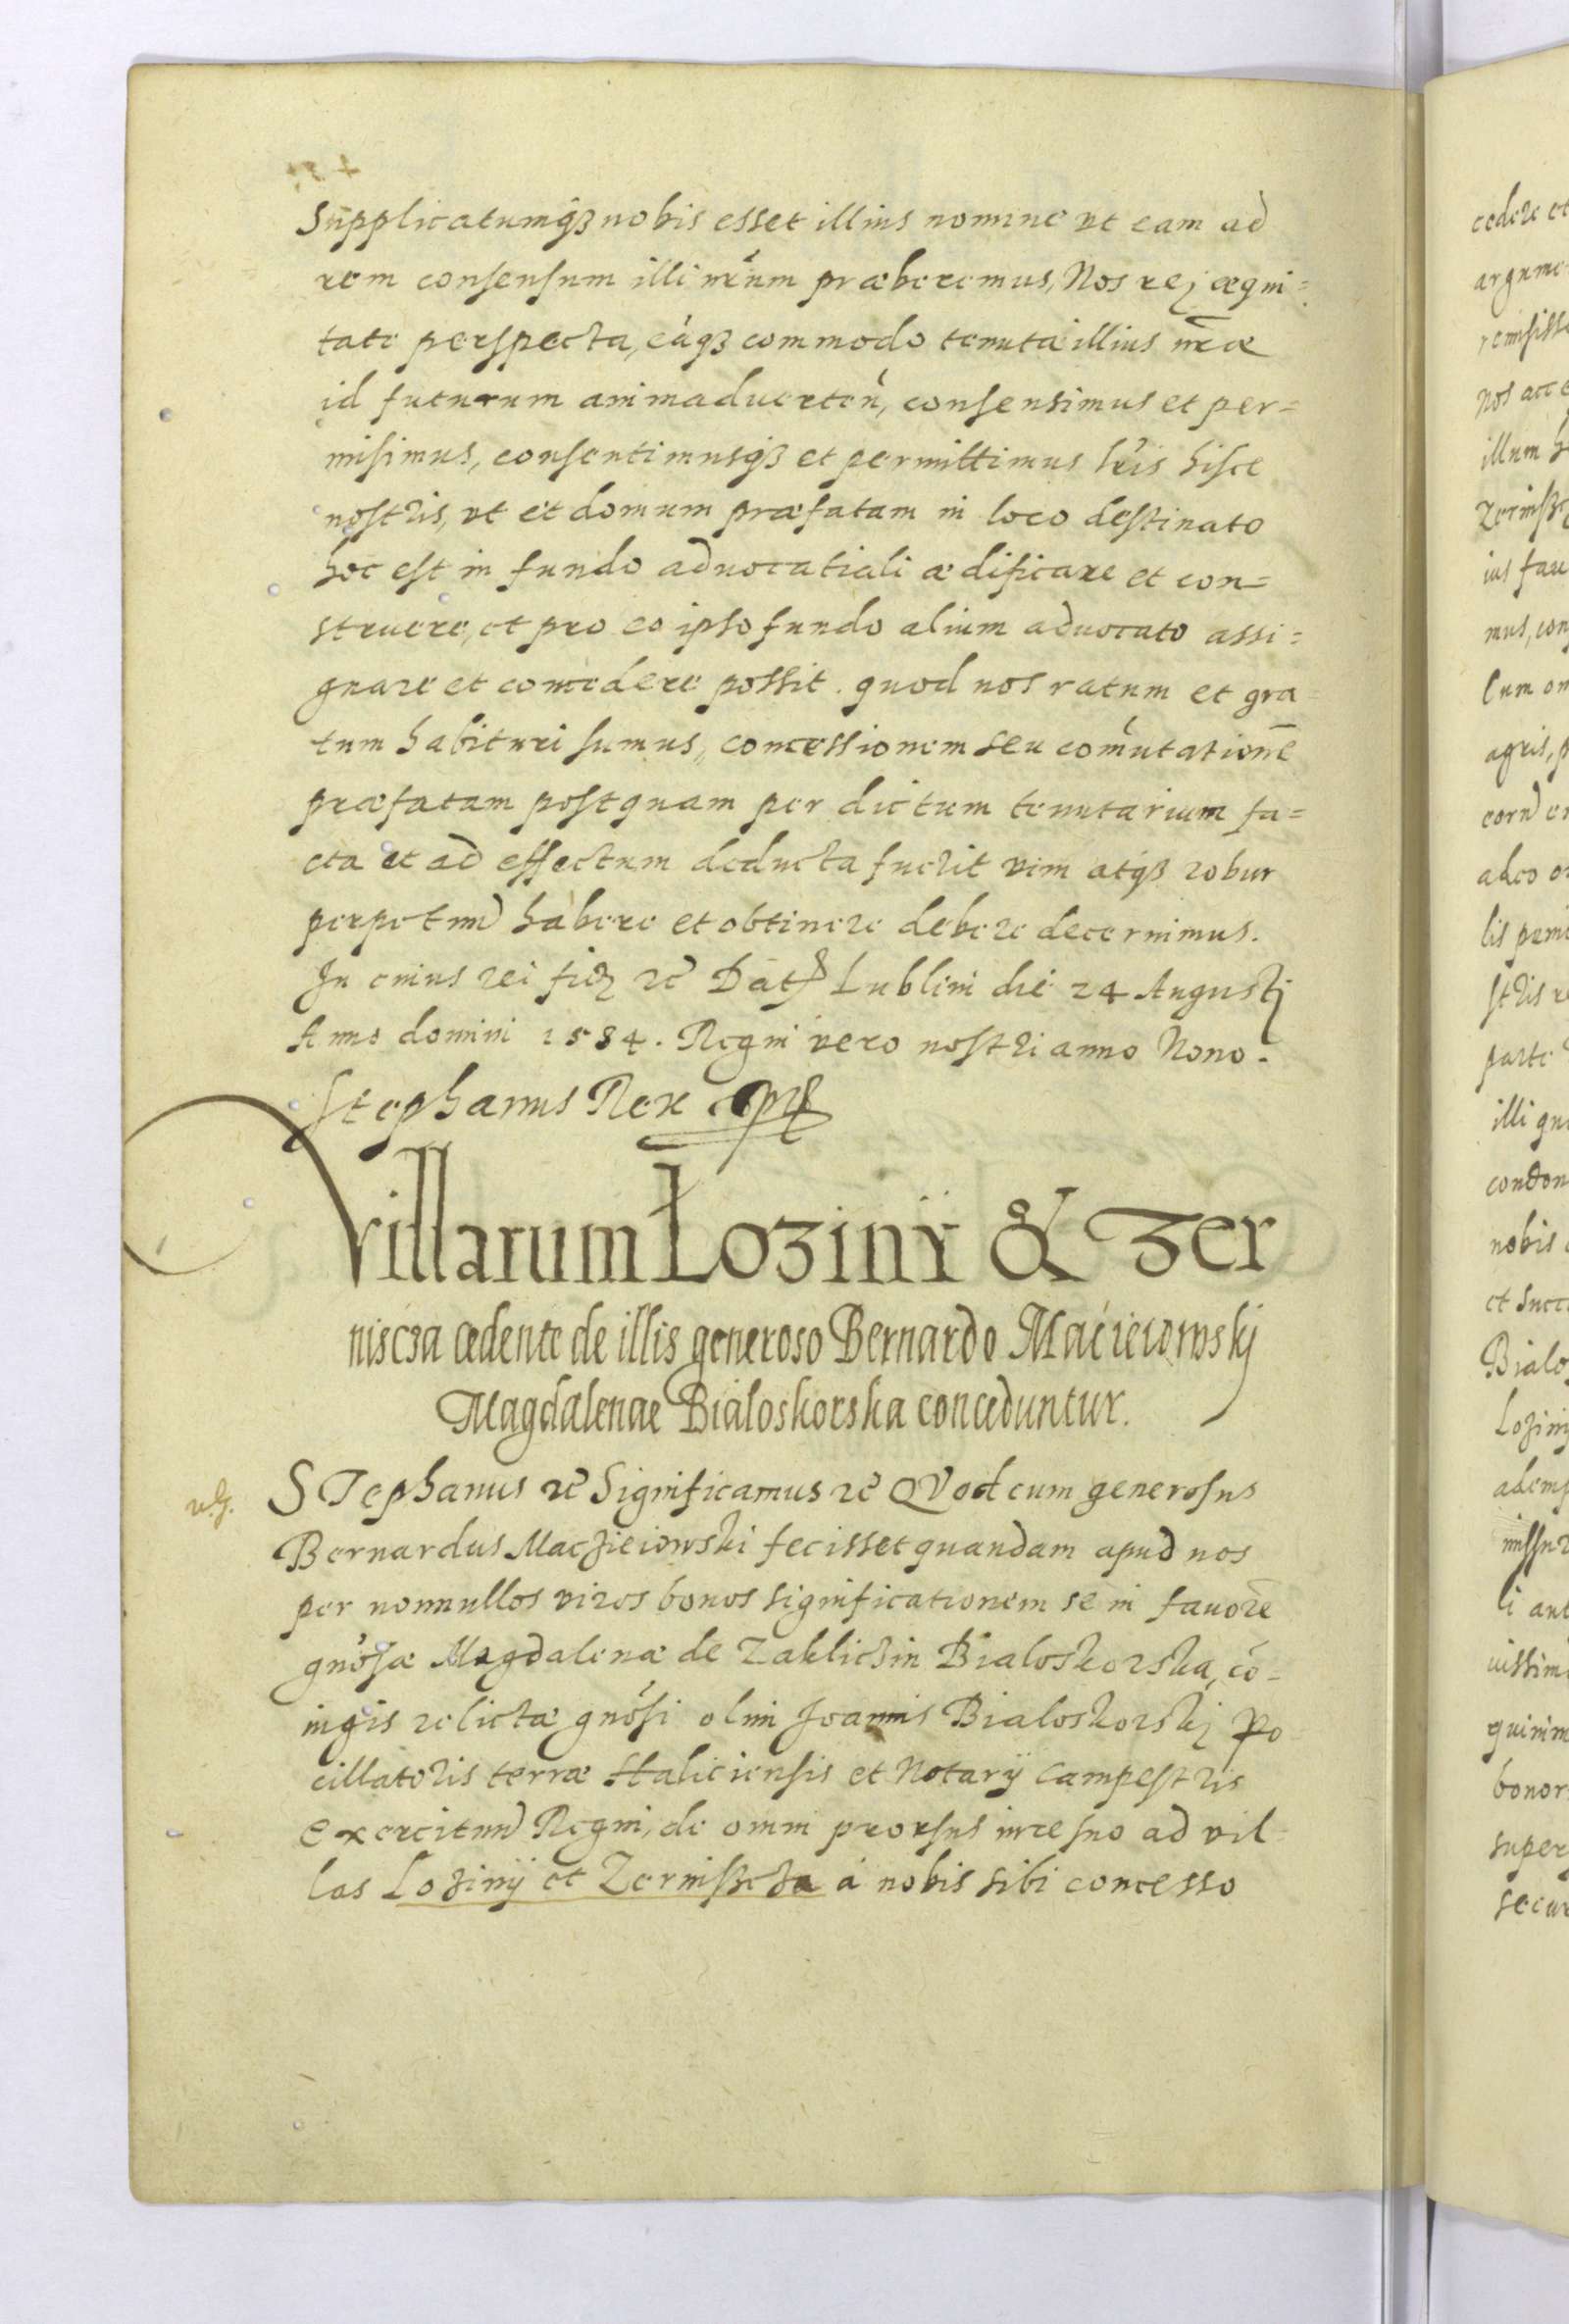 Supplicatumqꝫ nobis esset illius nomine vt eam ad
rem consensum illi nr̃um præberemus, Nos rej æqui=
tate perspecta, eáqꝫ commodo tenutæ illius nr̃æ
id futurum animaduerteñ, consensimus et per=
misimus, consentimusqꝫ et permittimus lr̃is hisce
nostris, vt et domum præfatam in loco destinato
hoc est in fundo aduocatiali ædificare et con=
struere, et pro eo ipso fundo alium aduocato assi=
gnare et concedere possit. quod nos ratum et gra=
tum habituri sumus, concessionem seu com̃utationẽ
præfatam postquam per dictum tenutarium fa=
cta et ad effectum deducta fuerit vim atqꝫ robur
perpetuũ habere et obtinere debere decernimus.
In cuius rei fidẽ ꝛc̃ Dat̃ Lublini die 24 Augustj
Anno domini 1584. Regni vero nostri anno Nono.
Stephanus Rex
Villarum Łozinÿ & Zer
niscza cedente de illis generoso Bernardo Macieiowskj
Magdalenae Bialoskorska conceduntur.
STephanus ꝛc̃ Significamus ꝛc̃ QVod cum generosus
Bernardus Maczieiowski fecisset quandam apud nos
per nonnullos viros bonos significationem se in fauorẽ
gnõsæ Magdalenæ de Zaklicżin Bialoskorska, cõ=
iugis relictæ gnõsi olim Joannis Bialoskorskj Po
cillatoris terræ Haliciensis et Notarÿ Campestris
exercituũ Regni, de omni prorsus iure suo ad vil=
las Lozinÿ et Zernißcza á nobis sibi concesso
cedere et
argume
remisiss
Nos acce
illum h
Zernißc
ius fau
mus, con
lum om
agris, p
eorũ er
adeo o
lis pen
stris re
parte
illi qu
condon
nobis
et succ
Bialo
Loziny
ademp
missur
li ant
uissim
quinim
bonor
super
secur